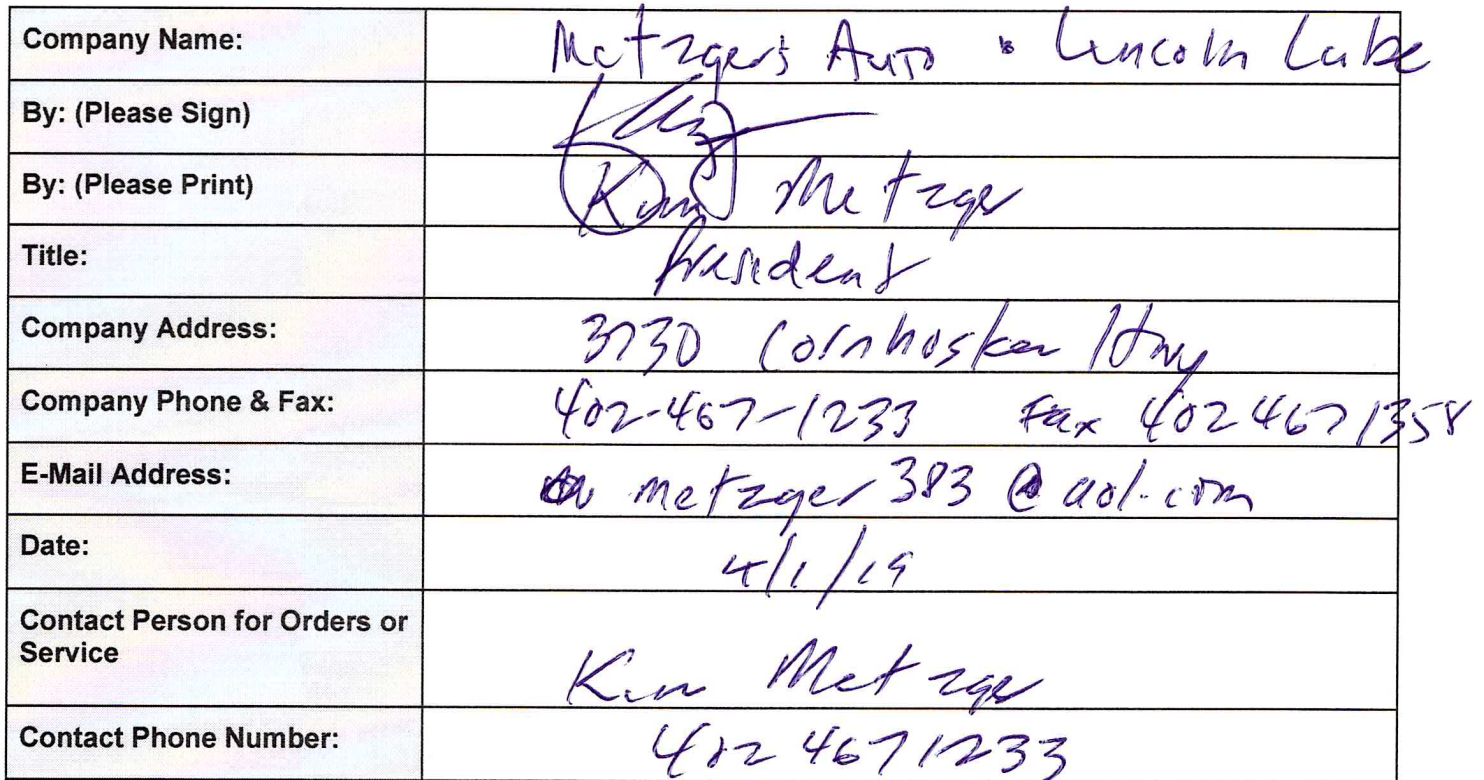 Company Name: Metzgers Auto • Lincoln Lube
By: (Please Sign)
By: (Please Print) Kim Metzger
Title: President
Company Address: 3730 Cornhusker Hwy
Company Phone & Fax: 402-467-1233 Fax 402 467 1358
E-Mail Address: metzger383@aol.com
Date: 4/1/19
Contact Person for Orders or
Service Kim Metzger
Contact Phone Number: 402 467 1233